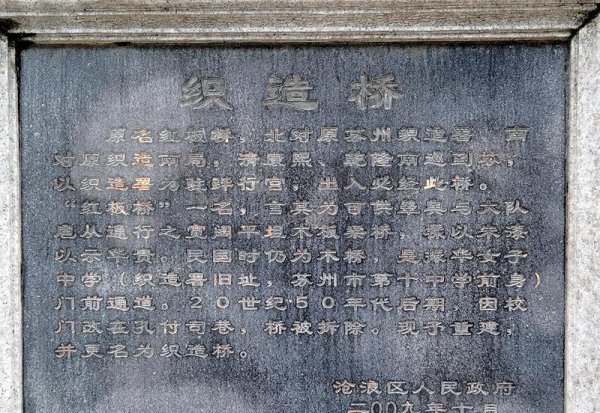 织造桥
原名红板桥，北对原苏州织造署，南
对原织造南局。清康熙、乾隆南巡到苏，
以织造署为驻跸行宫，出入必经此桥。
“红板桥”一名，言其为可供銮舆与大队
扈从通行之宽阔平坦木板梁桥，漆以朱漆
以示华贵。民国时仍为木桥，是振华女子
中学（织造署旧址，苏州市第十中学前身）
门前通道。20世纪50年代后期，因校
门改在孔付司巷，桥被拆除。现予重建，
并更名为织造桥。
沧浪区人民政府
二〇〇九年十月